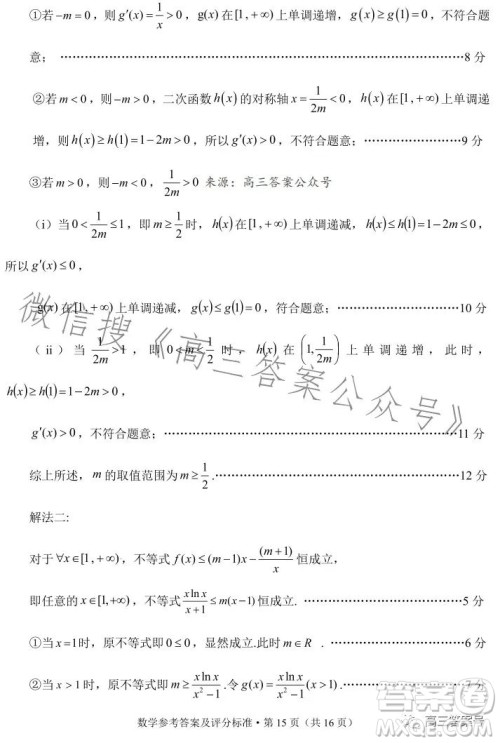 ①若 −m = 0，则 g′(x) = 1/x > 0，g(x) 在 [1, +∞) 上单调递增，g(x) ≥ g(1) = 0，不符合题
意；……………………………………………………………8 分
②若 m < 0，则 −m > 0，二次函数 h(x) 的对称轴 x = 1/2m < 0，h(x) 在 [1, +∞) 上单调递
增，则 h(x) ≥ h(1) = 1 − 2m > 0，所以 g′(x) > 0，不符合题意；……………………9 分
③若 m > 0，则 −m < 0，1/2m > 0 来源：高三答案公众号
（i）当 0 < 1/2m ≤ 1，即 m ≥ 1/2 时，h(x) 在 [1, +∞) 上单调递减，h(x) ≤ h(1) = 1 − 2m ≤ 0，
所以 g′(x) ≤ 0，
g(x) 在 [1, +∞) 上单调递减，g(x) ≤ g(1) = 0，符合题意；……………………10 分
（ii）当 1/2m > 1，即 0 < m < 1/2 时，h(x) 在 (1, 1/2m) 上单调递增，此时，
h(x) ≥ h(1) = 1 − 2m > 0，
g′(x) > 0，不符合题意；……………………………………11 分
综上所述，m 的取值范围为 m ≥ 1/2 .……………………………………12 分
解法二：
对于 ∀x ∈ [1, +∞)，不等式 f(x) ≤ (m−1)x − (m+1)/x 恒成立，
即任意的 x ∈ [1, +∞)，不等式 xlnx/(x+1) ≤ m(x−1) 恒成立. ……………………5 分
①当 x = 1 时，原不等式即 0 ≤ 0，显然成立.此时 m ∈ R . ……………………6 分
②当 x > 1 时，原不等式即 m ≥ xlnx/(x²−1) .令 g(x) = xlnx/(x²−1) (x > 1). ……………………7 分
数学参考答案及评分标准・第 15 页（共 16 页）
微信搜《高三答案公众号》
高三答案号